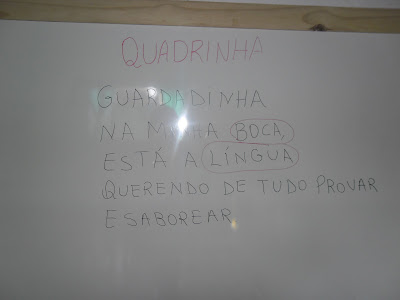 QUADRINHA
GUARDADINHA
NA MINHA BOCA,
ESTÁ A LÍNGUA
QUERENDO DE TUDO PROVAR
E SABOREAR